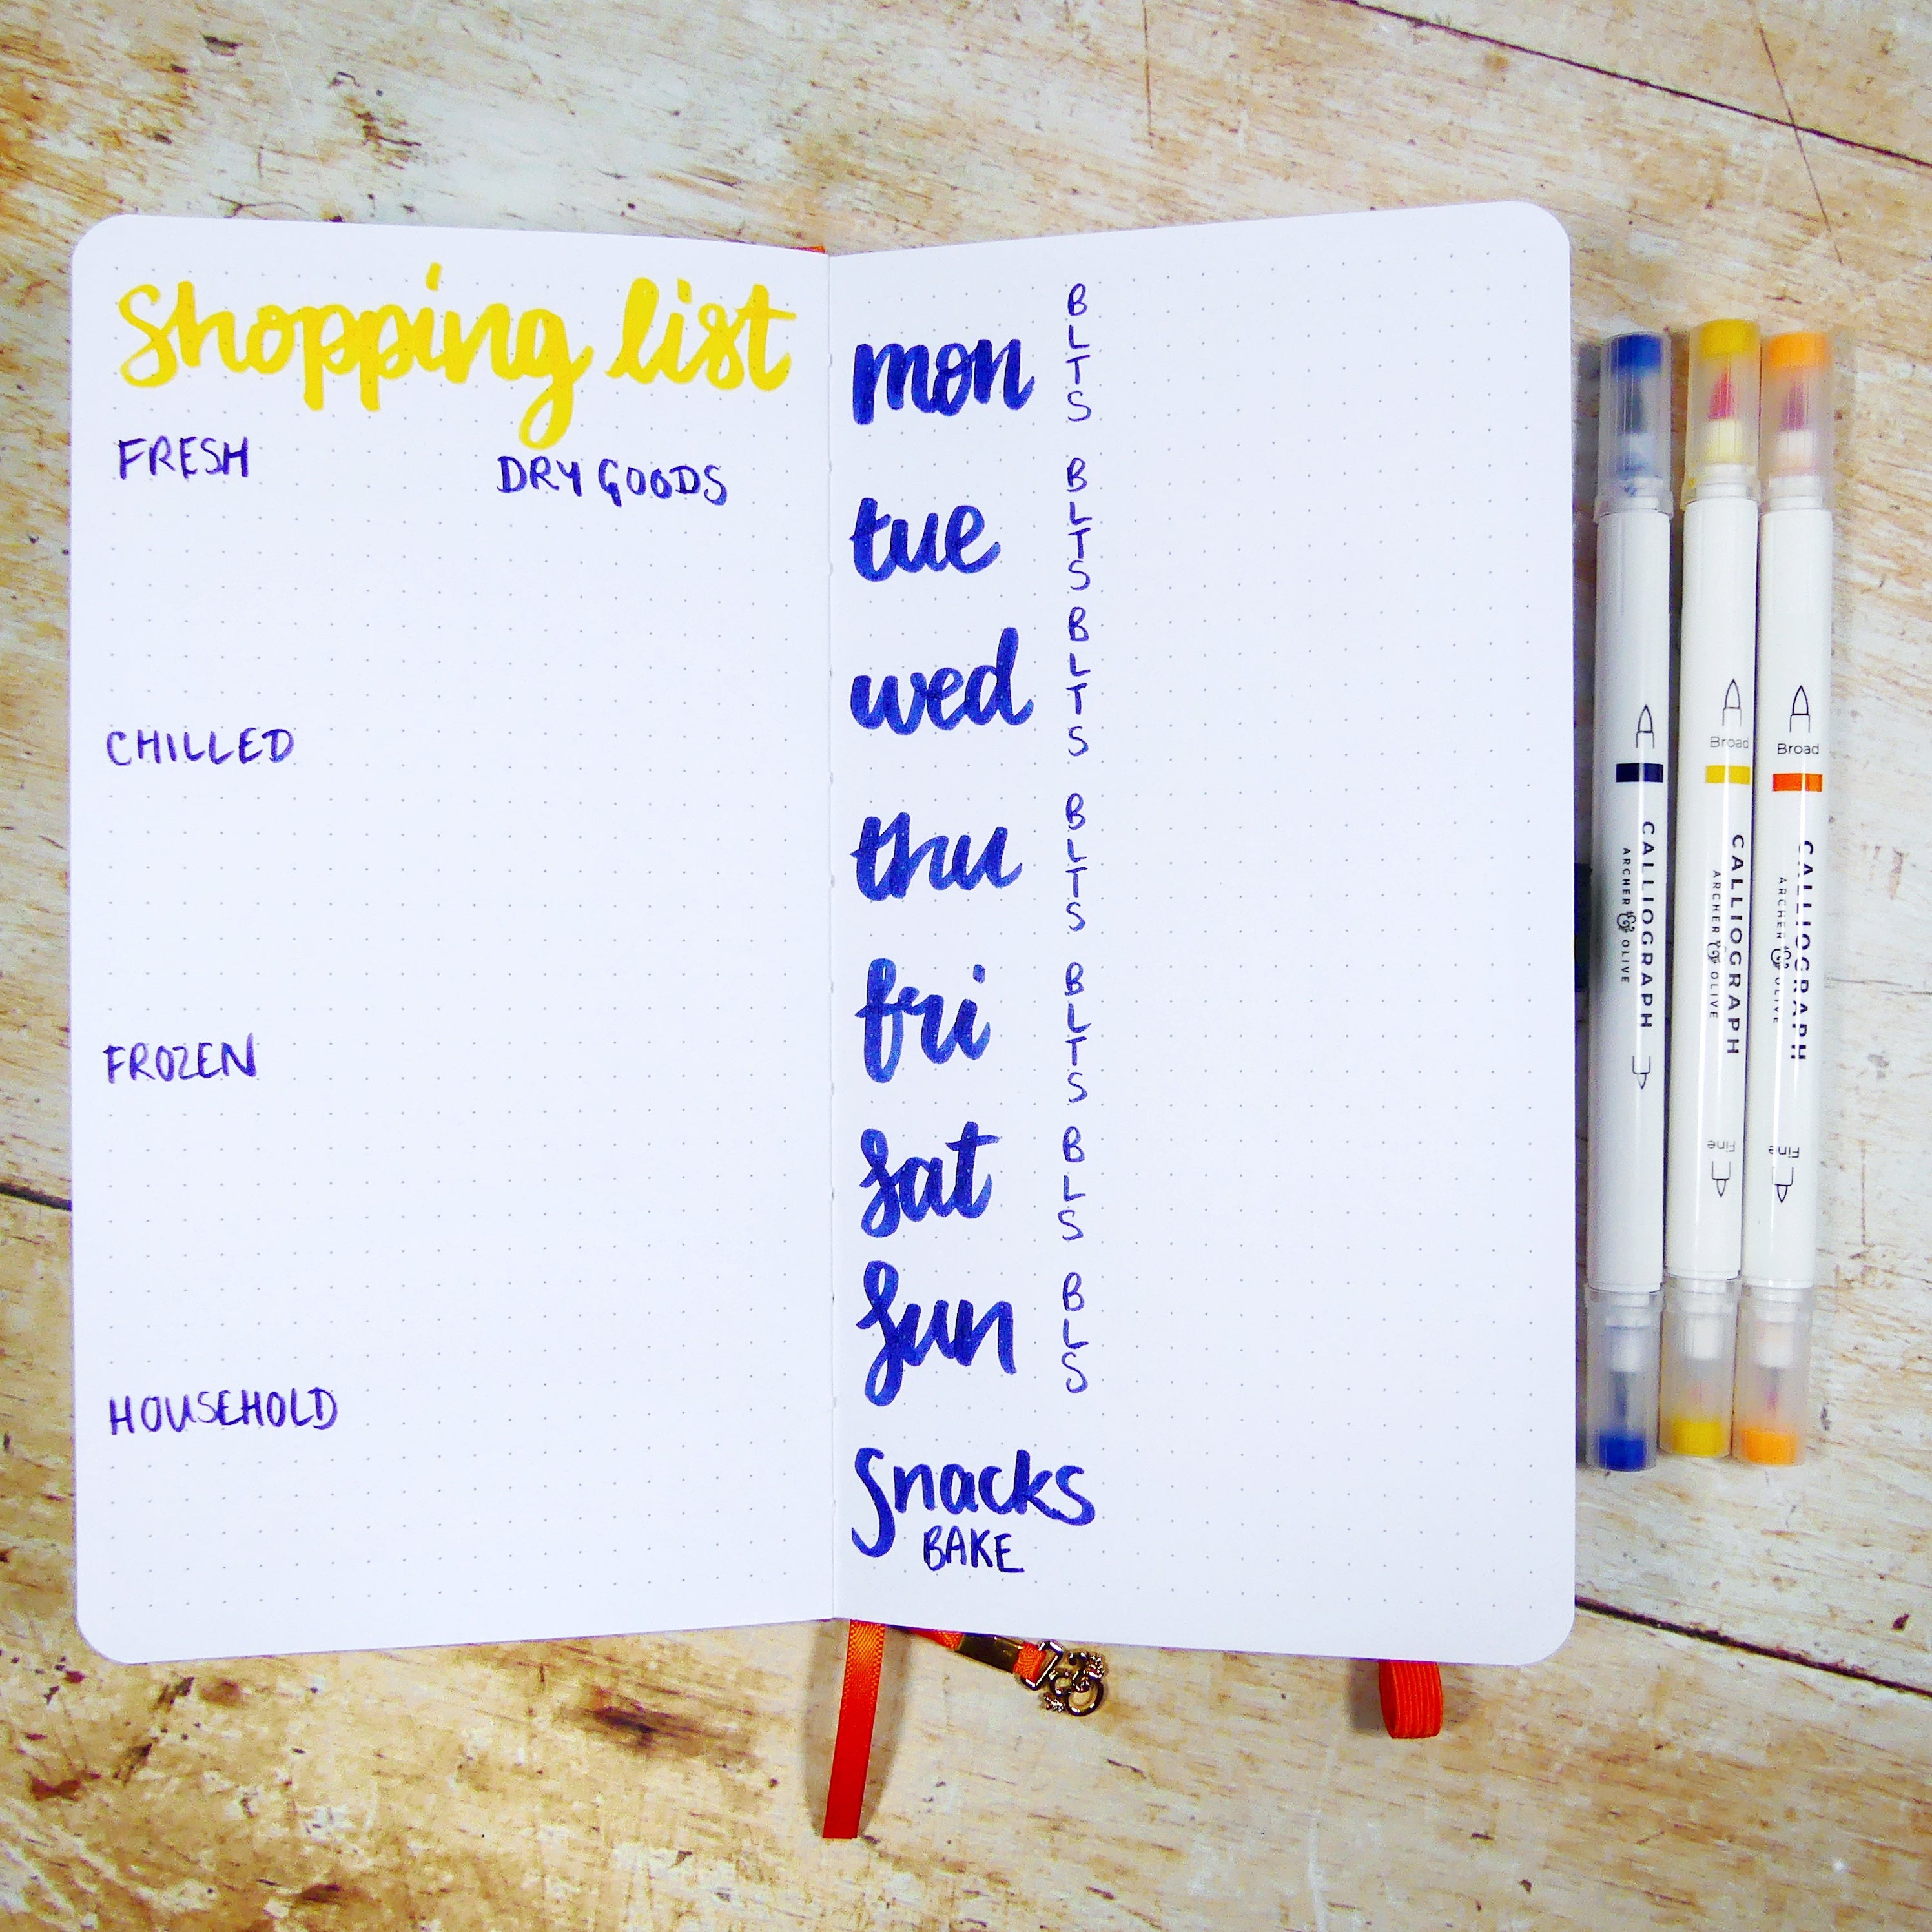 Shopping list
FRESH
DRY GOODS
CHILLED
FROZEN
HOUSEHOLD
mon
B
L
T
S
tue
B
L
T
S
wed
B
L
T
S
thu
B
L
T
S
fri
B
L
T
S
sat
B
L
S
sun
B
L
S
Snacks
BAKE
CALLIOGRAPH
ARCHER & OLIVE
Broad
CALLIOGRAPH
ARCHER & OLIVE
Fine
Broad
CALLIOGRAPH
ARCHER & OLIVE
Fine